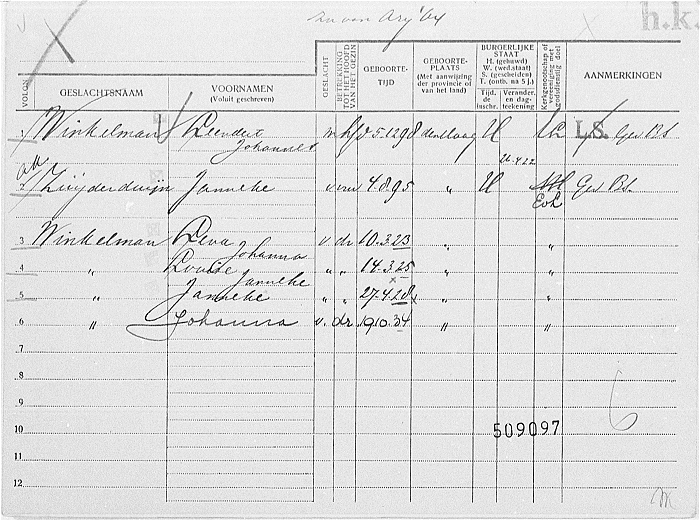 h.k.
VOLGNo.
GESLACHTSNAAM
VOORNAMEN
(Voluit geschreven)
GESLACHT
BETREKKING TOT HET HOOFD VAN HET GEZIN
GEBOORTE-
TIJD
GEBOORTE-
PLAATS
(Met aanwijzing
der provincie of
van het land)
BURGERLIJKE
STAAT
H. (gehuwd)
W. (wed.staat)
S. (gescheiden)
T. (ontb. na 5 j.)
Tijd.
de
inschr.
Verander.
en dag-
teekening
Kerkgenootschap of
vereeniging met
godsdienstig doel
AANMERKINGEN
1 Winkelman Leendert m h 5.12.98 den Haag H L.S. Gev Bs.
Johannes
26.4.22
2 Zuijderduijn Janneke v vr 4.8.95 " H NH Gev Bs.
Evk
3 Winkelman Leva v. dr 10.3.23 " "
Johanna
4 " Louise " " 14.3.25 " "
Janneke
5 " Janneke " " 27.4.28 " "
6 " Johanna v. dr. 19.10.34 " "
7
8
9
6
10 509097
11
12